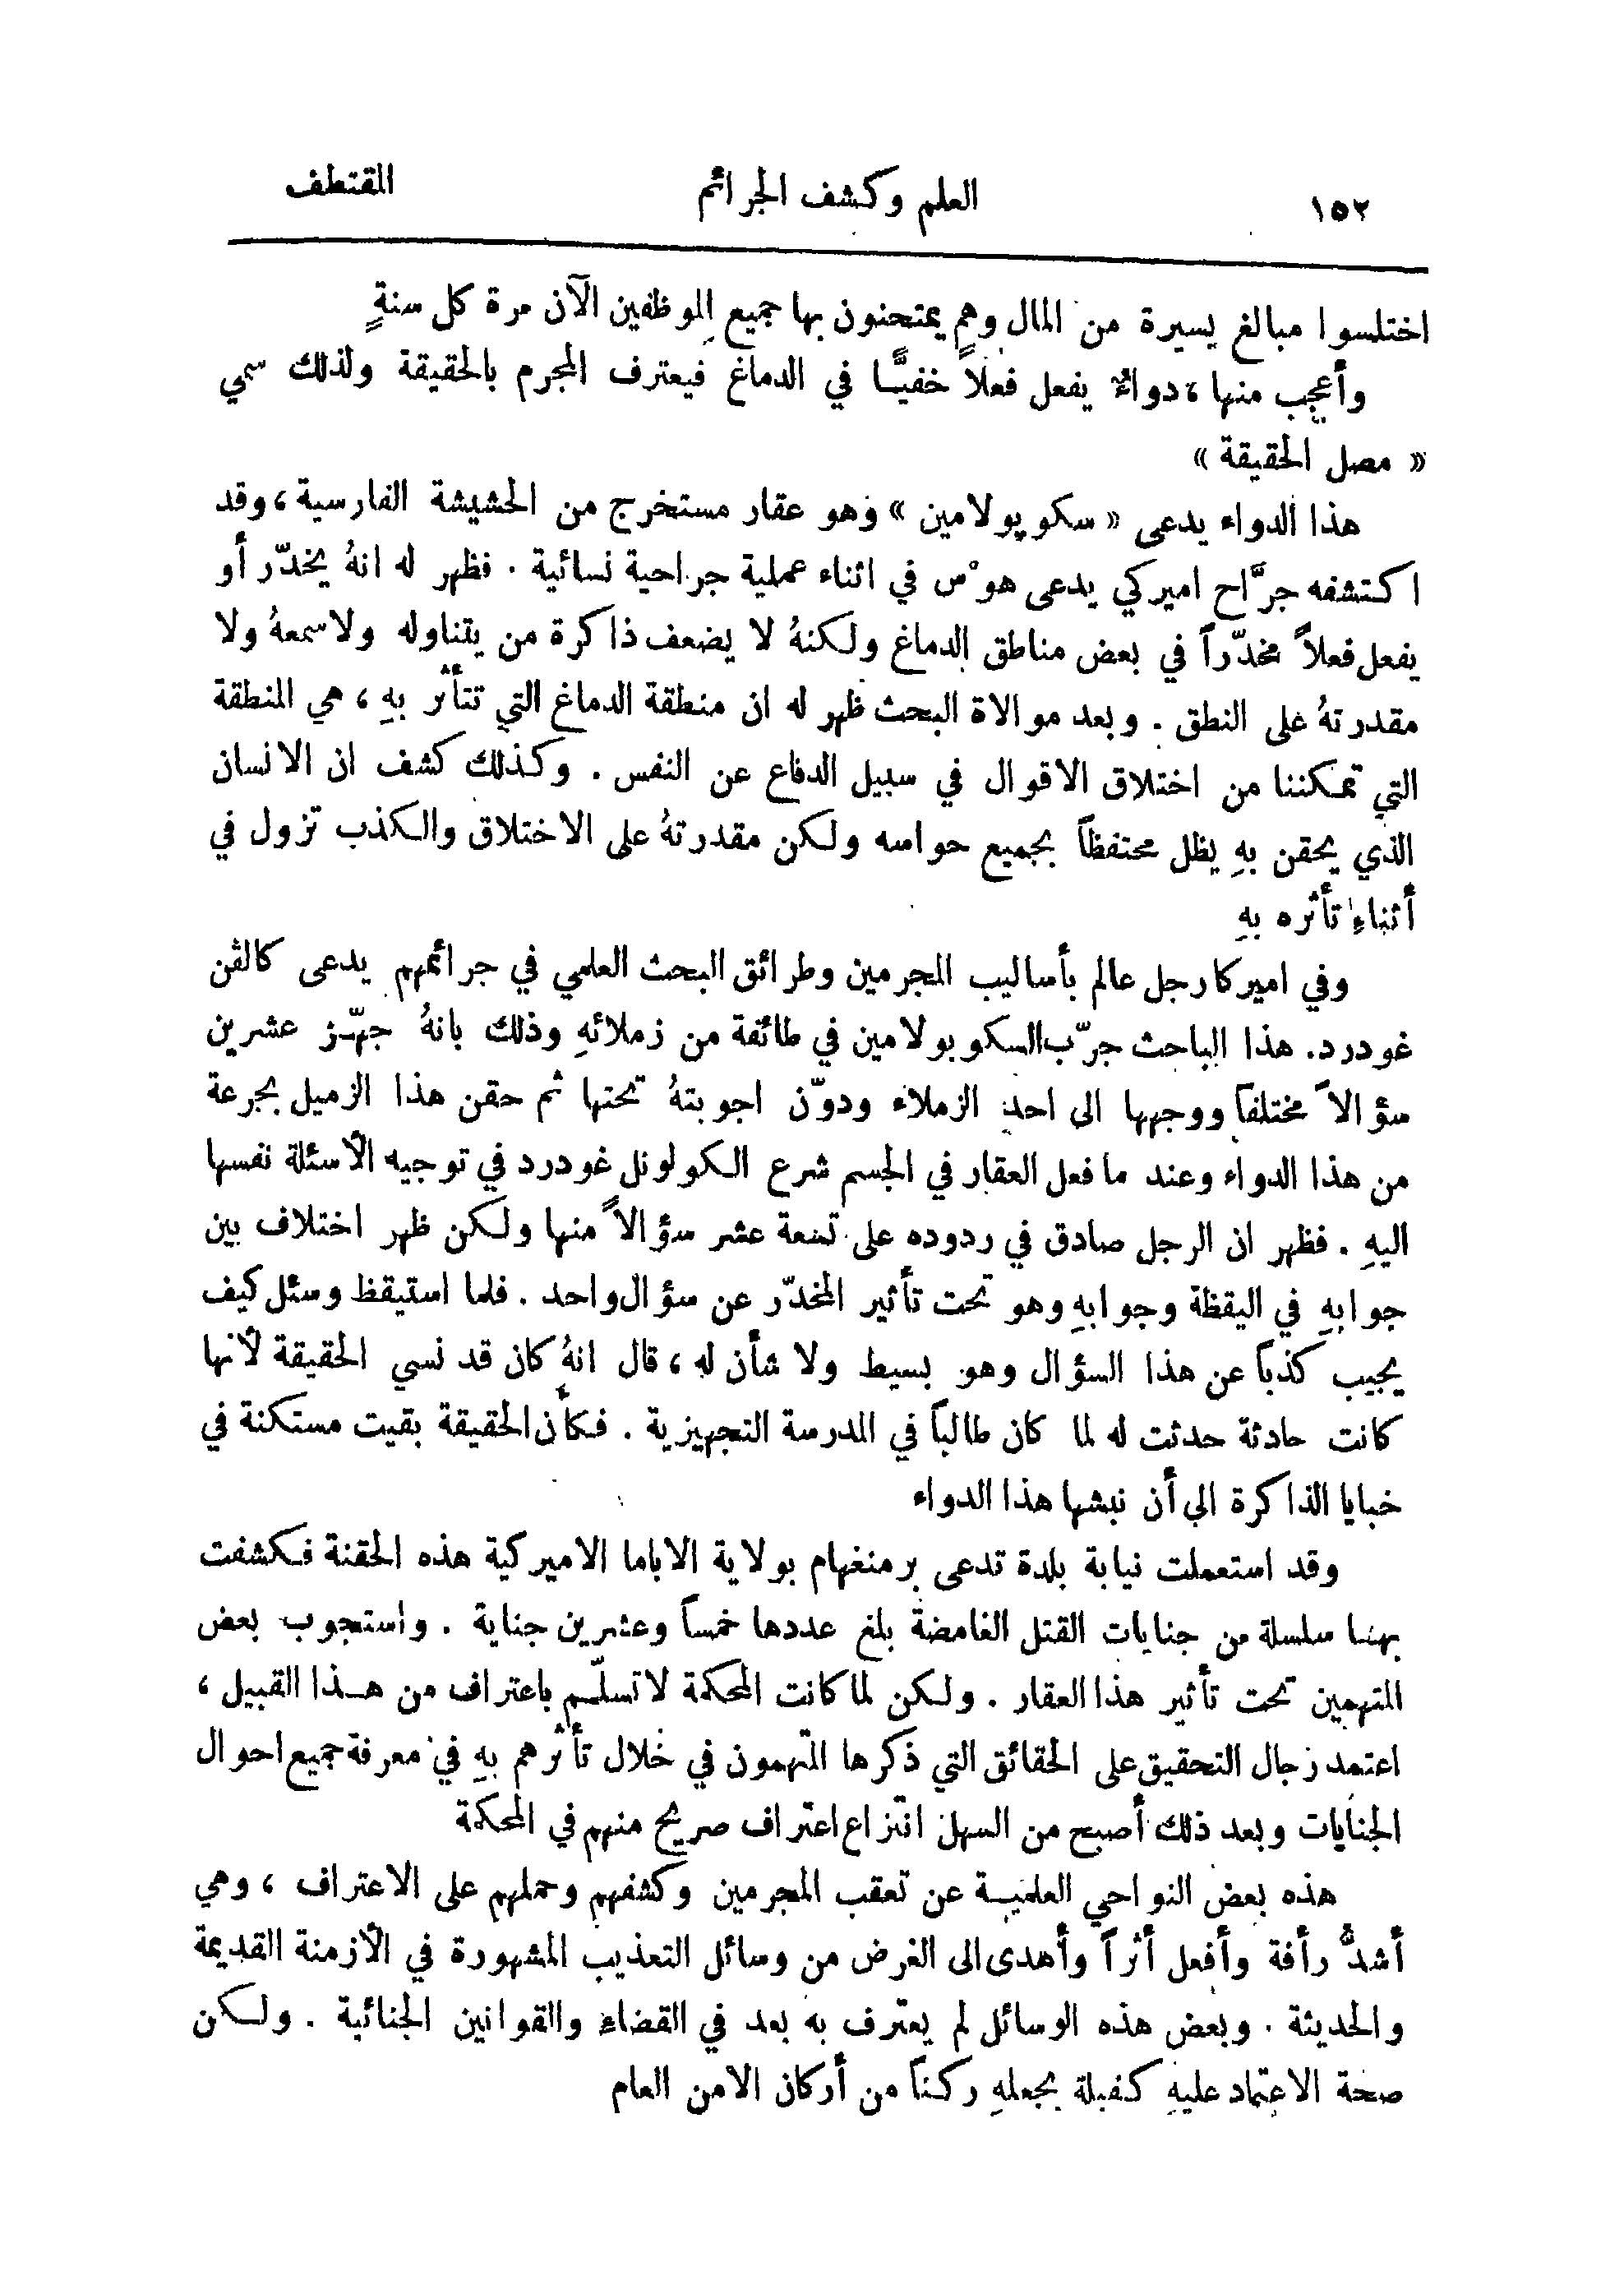 ١٥٢ العلم وكشف الجرائم المقتطف
اختلسوا مبالغ يسيرة من المال وهم يمتحنون بها جميع الموظفين الآن مرة كل سنةٍ
وأعجب منها، دواءٌ يفعل فعلاً خفيًّا في الدماغ فيعترف المجرم بالحقيقة ولذلك سمي
« مصل الحقيقة »
هذا الدواء يدعى « سكوپولامين » وهو عقار مستخرج من الحشيشة الفارسية، وقد
اكتشفه جرَّاح اميركي يدعى هوْس في اثناء عملية جراحية نسائية . فظهر له انهُ يخدّر أو
يفعل فعلاً مخدّراً في بعض مناطق الدماغ ولكنهُ لا يضعف ذاكرة من يتناوله ولا سمعهُ ولا
مقدرتهُ على النطق . وبعد موالاة البحث ظهر له ان منطقة الدماغ التي تتأثر بهِ ، هي المنطقة
التي تمكننا من اختلاق الاقوال في سبيل الدفاع عن النفس . وكذلك كشف ان الانسان
الذي يحقن بهِ يظل محتفظاً بجميع حواسه ولكن مقدرتهُ على الاختلاق والكذب تزول في
أثناءِ تأثره بهِ
وفي اميركا رجل عالم بأساليب المجرمين وطرائق البحث العلمي في جرائمهم يدعى كالڤن
غودرد. هذا الباحث جرّب السكوبولامين في طائفة من زملائهِ وذلك بانهُ جهّز عشرين
سؤالاً مختلفاً ووجهها الى احد الزملاء ودوّن اجوبتهُ تحتها ثم حقن هذا الزميل بجرعة
من هذا الدواء وعند ما فعل العقار في الجسم شرع الكولونل غودرد في توجيه الأسئلة نفسها
اليهِ . فظهر ان الرجل صادق في ردوده على تسعة عشر سؤالاً منها ولكن ظهر اختلاف بين
جوابهِ في اليقظة وجوابهِ وهو تحت تأثير المخدّر عن سؤال واحد . فلما استيقظ وسئل كيف
يجيب كذباً عن هذا السؤال وهو بسيط ولا شأن له ، قال انهُ كان قد نسي الحقيقة لأنها
كانت حادثة حدثت له لما كان طالباً في المدرسة التجهيزية . فكأن الحقيقة بقيت مستكنة في
خبايا الذاكرة الى أن نبشها هذا الدواء
وقد استعملت نيابة بلدة تدعى برمنغهام بولاية الاباما الاميركية هذه الحقنة فكشفت
بها سلسلة من جنايات القتل الغامضة بلغ عددها خمساً وعشرين جناية . واستجوب بعض
المتهمين تحت تأثير هذا العقار . ولكن لما كانت المحكمة لا تسلّم باعتراف من هذا القبيل ،
اعتمد رجال التحقيق على الحقائق التي ذكرها المتهمون في خلال تأثرهم بهِ في معرفة جميع احوال
الجنايات وبعد ذلك أصبح من السهل انتزاع اعتراف صريح منهم في المحكمة
هذه بعض النواحي العلمية عن تعقب المجرمين وكشفهم وحملهم على الاعتراف ، وهي
أشدُّ رأفة وأفعل أثراً وأهدى الى الغرض من وسائل التعذيب المشهورة في الأزمنة القديمة
والحديثة . وبعض هذه الوسائل لم يعترف به بعد في القضاءِ والقوانين الجنائية . ولكن
صحة الاعتماد عليهِ كفيلة بجعلهِ ركناً من أركان الامن العام